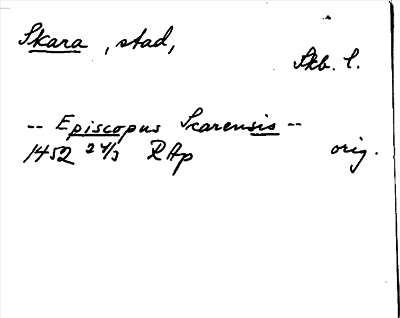 Skara, stad,
Skb. l.
-- Episcopus Scarensis --
1452 24/3 RAp orig.